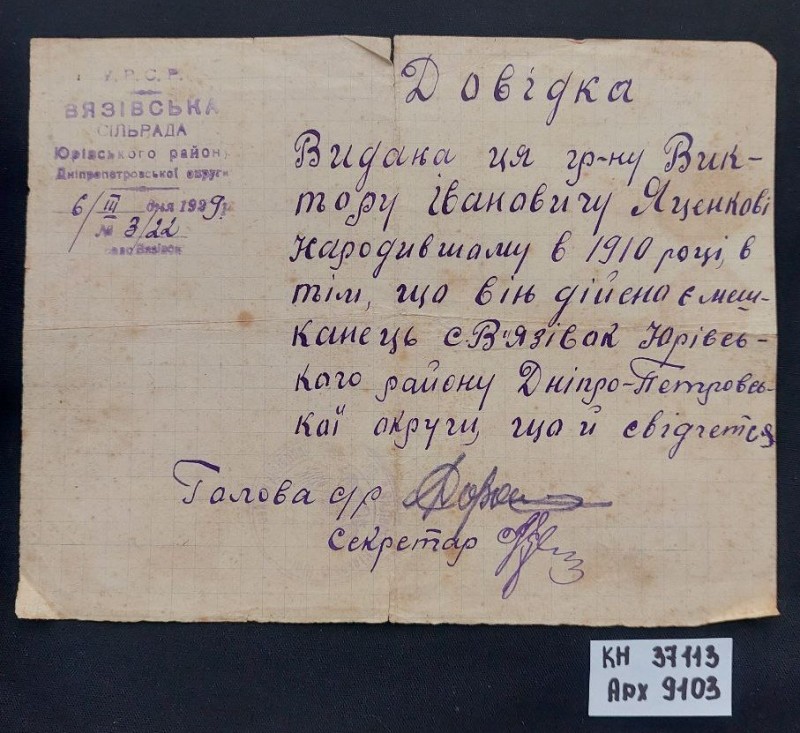 У.Р.С.Р.
ВЯЗІВСЬКА
СІЛЬРАДА
Юрівського району
Дніпропетровської округи
6/III дня 1929р.
№ 3/22
Довідка
Видана ця гр-ну Вик-
тору Івановичу Яценкові
Народившому в 1910 році, в
тім, що він дійсна є меш-
канець с. В'язівок Юрівсь-
кого району Дніпро-Петровсь-
кої округи, що й свідчется
Голова с/р
Секретар
КН 37113
Арх 9103